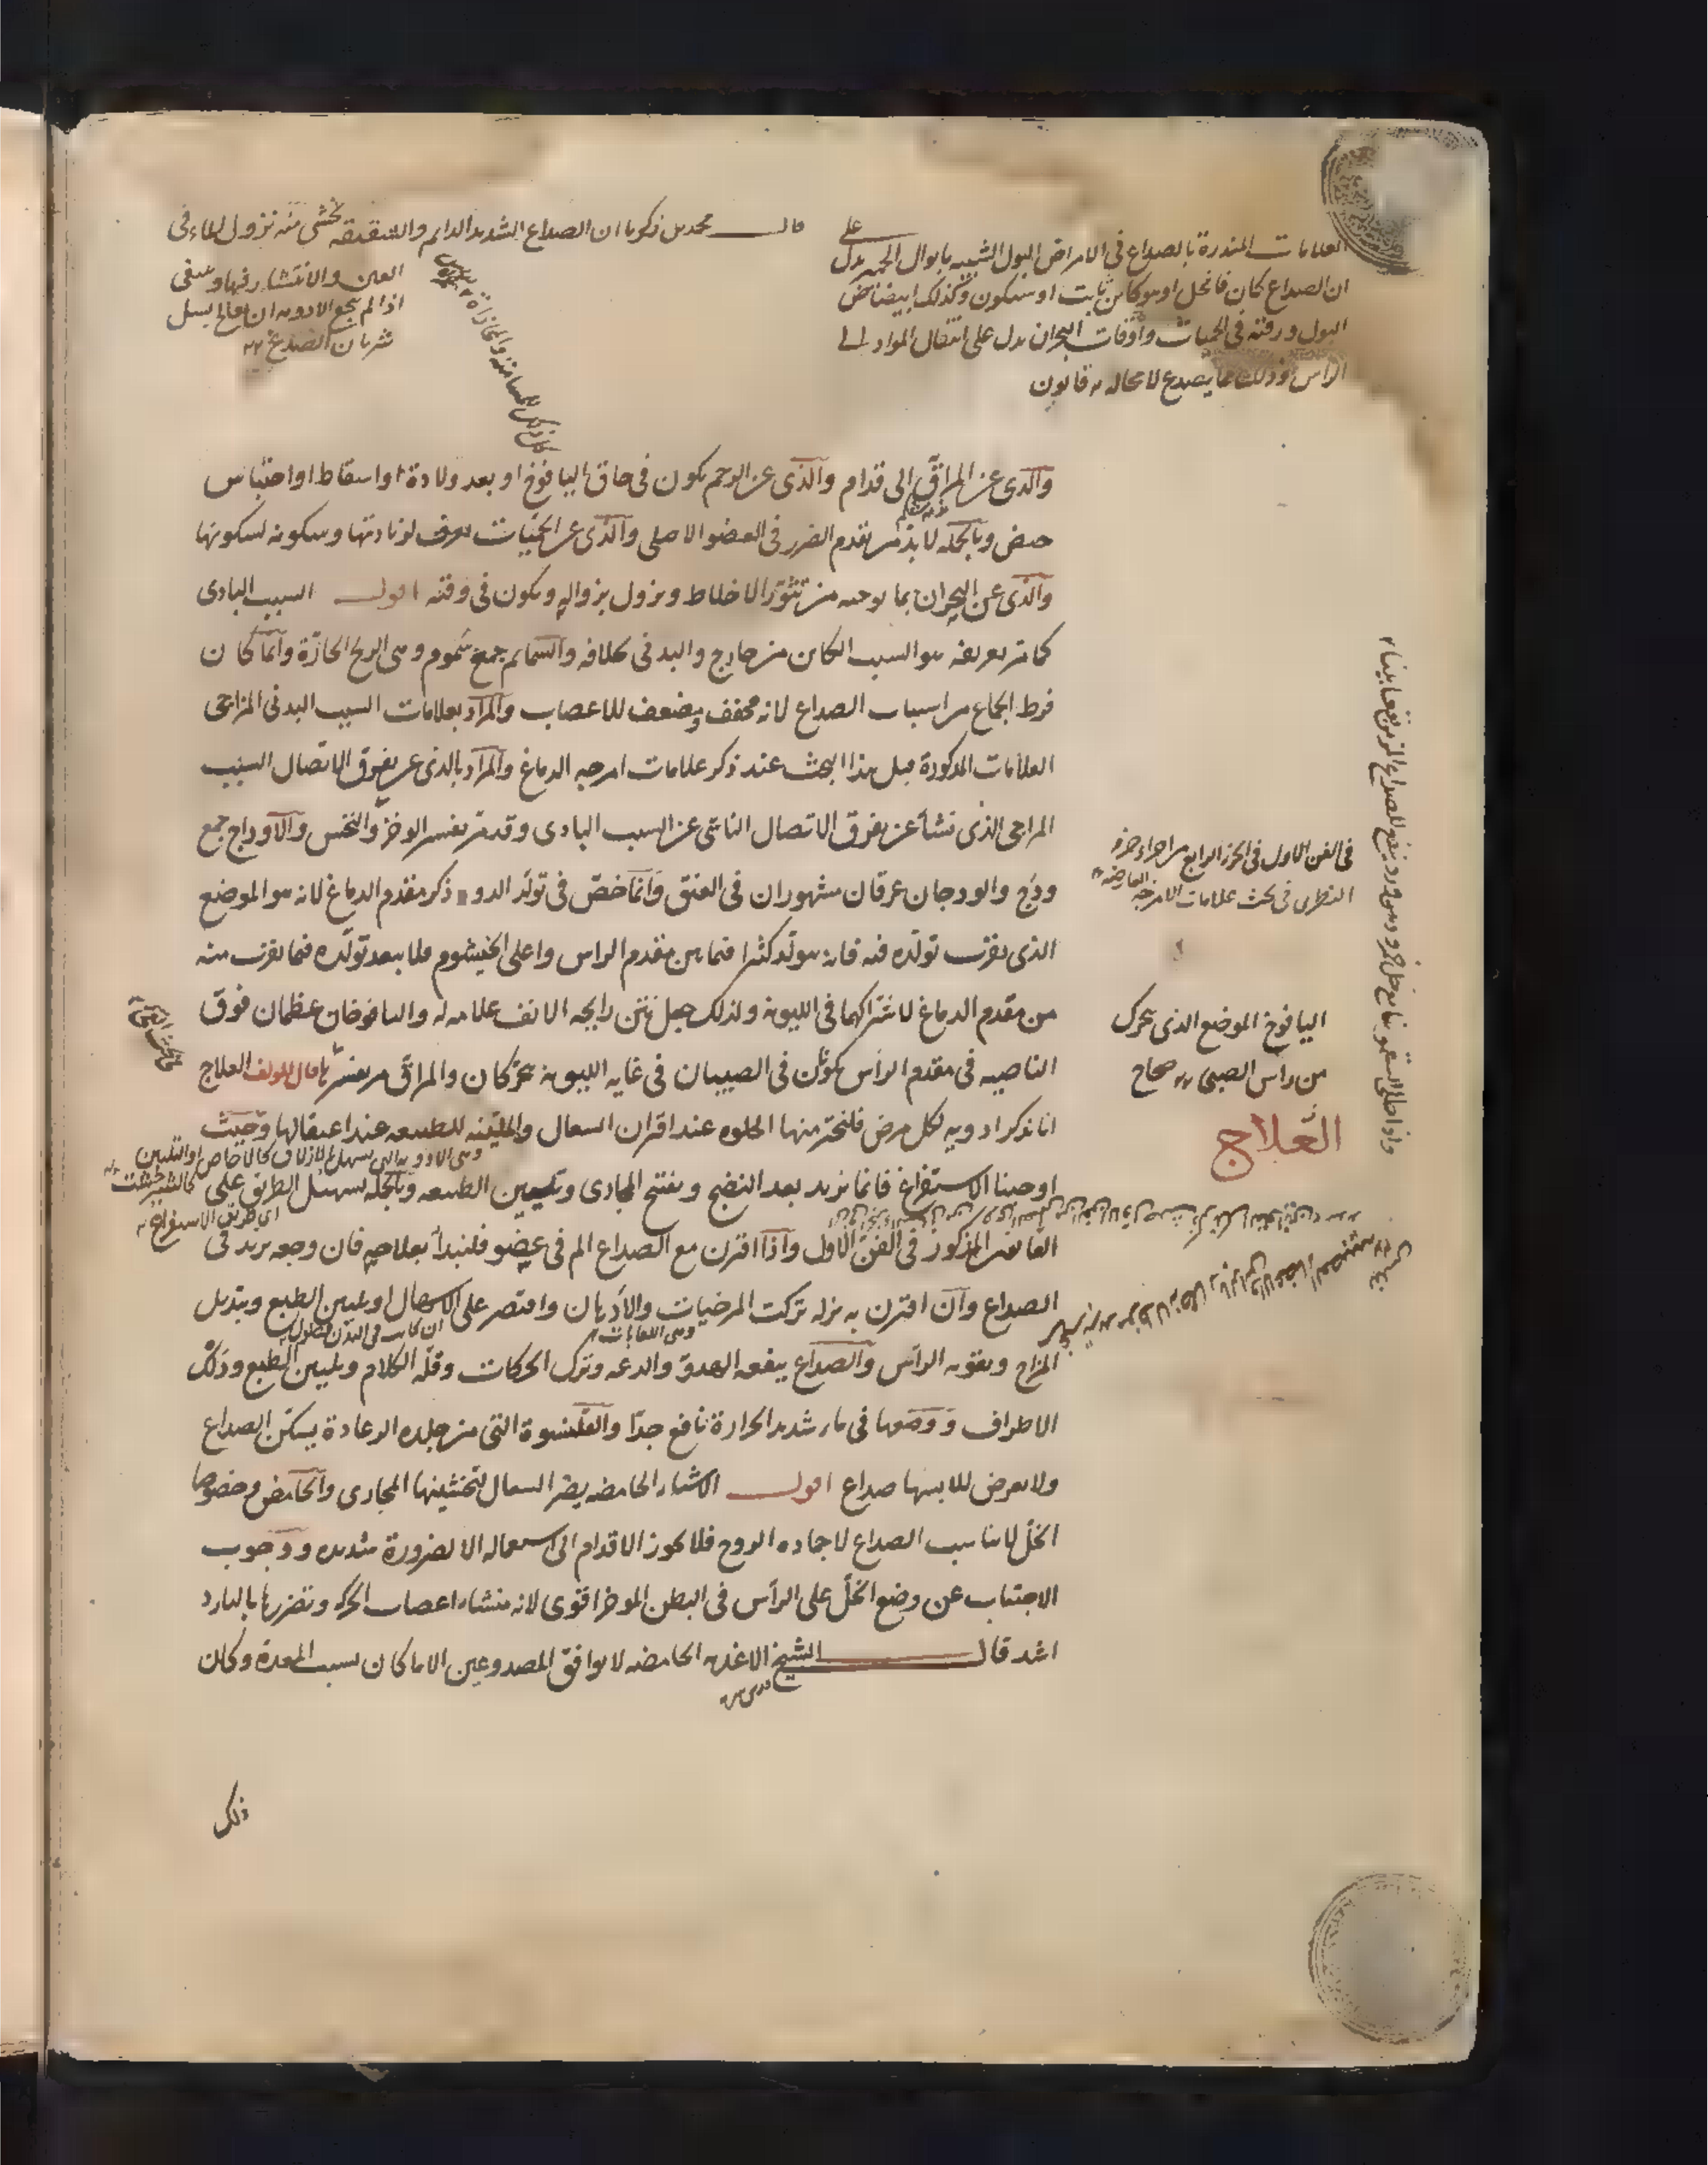 العلامات المنذرة بالصداع في الامراض البول الشبيه بابوال الحمير يدل على
ان الصداع كان فانحل او هو كاين ثابت او سيكون وكذلك ابيضاض
البول ورقته في الحميات واوقات البحران يدل على انتقال المواد الى
الراس وذلك مما يصدع لا محاله قانون
قال محمد بن زكريا ان الصداع الشديد الدايم والشقيقه يخشى منه نزول الماء في
العين والانتشار فيها وينبغي
اذا لم ينجع الادويه ان يعالج بسل
شريان الصدغ
والذى عن المراق الى قدام والذى عن الرحم يكون في حاق اليافوخ او بعد ولادة او اسقاط او احتباس
حيض وبالجمله لا بد من تقدم الضرر في العضو الاصلى والذى عن الحميات يعرف لزيادتها وسكونه لسكونها
والذى عن البحران بما يوجبه من تثور الاخلاط ويزول بزواله ويكون في وقته اقول السبب البادى
كما مر تعريفه هو السبب الكائن من خارج والبدنى خلافه والسمايم جمع سموم وهى الريح الحارة وانما كان
فرط الجماع من اسباب الصداع لانه مجفف ومضعف للاعصاب والمراد بعلامات السبب البدنى المزاجى
العلامات المذكورة قبل هذا البحث عند ذكر علامات امزجه الدماغ والمراد بالذى عن تفرق الاتصال السبب
المزاجى الذى نشأ عن تفرق الاتصال الناشى عن السبب البادى وقد مر تفسير الوخز والنخس والاوداج جمع
ودج والودجان عرقان مشهوران في العنق وانما خص في تولد الدود ذكر مقدم الدماغ لانه هو الموضع
الذى يقرب تولده فيه فانه يتولد كثيرا فيما بين مقدم الراس واعلى الخيشوم فلا يبعد تولده فيما يقرب منه
من مقدم الدماغ لاشتراكهما في الليونه ولذلك جعل نتن رايحه الانف علامه له واليافوخان عظمان فوق
الناصيه في مقدم الراس يكونان في الصبيان في غايه الليونه يتحركان والمراق مر تفسيرها قال المولف العلاج
انا نذكر ادويه لكل مرض فلنختر منها الحلوه عند اقتران السعال والملينه للطبيعه عند اعتقالها وحيث
وهى الادويه التى تسهل بالازلاق كالاجاص او التليين كالشيرخشت
اوجبنا الاستفراغ فانما نريد بعد النضج وتفتح المجارى وتليين الطبيعه وبالجمله تسهيل الطريق على
اى طريق الاستفراغ
القانون المذكور في الفن الاول واذا اقترن مع الصداع الم في عضو فلنبدأ بعلاجه فان وجعه يزيد في
الصداع وان اقترن به نزله تركت المرخيات والادهان واقتصر على الاسهال او تليين الطبع وتبديل
وهى اللعابات
المزاج وتقويه الراس والصداع ينفعه الهدو والدعه وترك الحركات وقله الكلام وتليين الطبع ودلك
الاطراف ووضعها في ماء شديد الحرارة نافع جدا والقلنسوة التى من جلده الرعادة يسكن الصداع
ولا يعرض للابسها صداع اقول الاشياء الحامضه يضر السعال لتخشينها المجارى والحامض وخصوصا
الخل لا يناسب الصداع لاجماده الروح فلا يجوز الاقدام الى استعماله الا لضرورة شديده ووجوب
الاجتناب عن وضع الخل على الراس في البطن الموخر اقوى لانه منشاء اعصاب الحركه وتضررها بالبارد
اشد قال الشيخ الاغذيه الحامضه لا يوافق المصدوعين الا ما كان بسبب المعدة وكان
ذلك
في الفن الاول في الجزء الرابع من اجزاء جزو
النظرى في بحث علامات الامزجه العارضه
اليافوخ الموضع الذى يتحرك
من رأس الصبى صحاح
العلاج